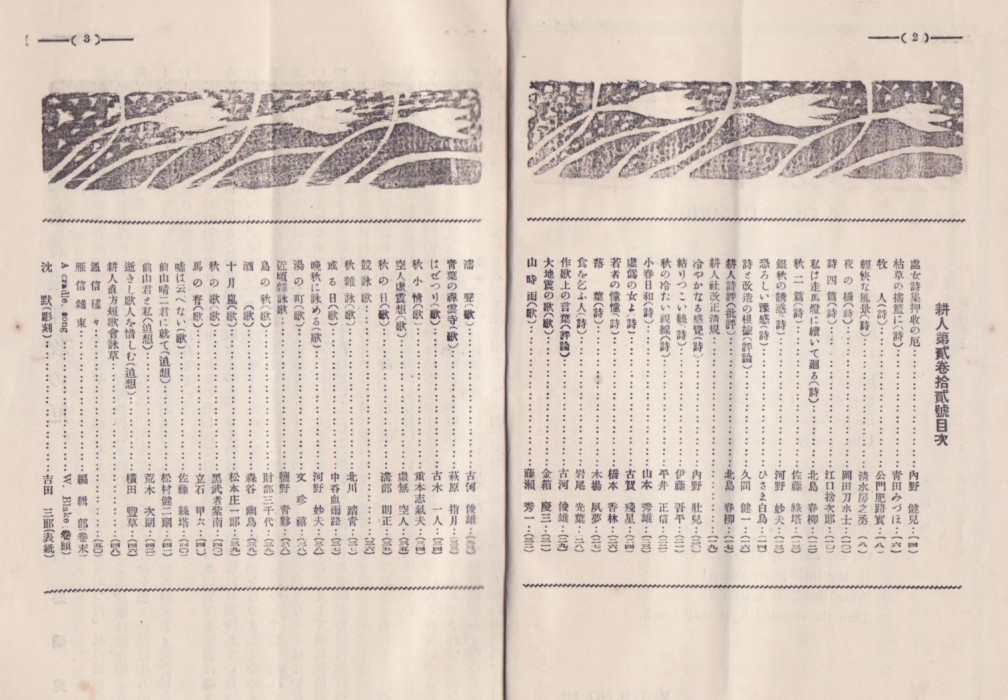 (2)
耕人第貳卷拾貳號目次
處女詩集押收の厄 内野 健兒(一四)
枯草の搖籃に(詩) 青田みづほ(一六)
牧人(詩) 公門肥路實(一八)
輕快な風景(詩) 清水房之丞(一八)
夜の橋(詩) 岡田刀水士(二〇)
詩四篇(詩) 江口捨次郎(二〇)
私は走馬燈に續いて廻る(詩) 北島 春柳(二二)
秋二篇(詩) 佐藤 綠塔(二三)
銀秋の誘惑(詩) 河野 妙夫(二三)
恐ろしい豫感(詩) ひさま白鳥
詩と改造の根據(評論) 久岡 健一
耕人詩評(批評) 北島 春柳
耕人社改正清規
冷やかなる感覺(詩) 内野 壯兒
粘りつこい綠(詩) 伊藤 晋平
秋の冷たい視線(詩) 平井 正信
小春日和(詩) 山本 秀雄
虛僞の女よ(詩) 古賀 殘星
若者の憧憬(詩) 橋本 香林
落葉(詩) 木場 夙夢
食を乞ふ人(詩) 岩尾 光葉
作歌上の言葉(評論) 古河 俊雄
大地震の歌(歌) 金箱 慶三
山時雨(歌) 藤瀬 秀一
(3)
濤聲(歌) 古河 俊雄
青葉の禪雲寺(歌) 萩原 指月
はぜつり(歌) 古木 一人
秋小情(歌) 重本志氣夫
空人虛雲想(歌) 虛無 空人
秋の日(歌) 溝部 則正
競詠歌
秋雜詠(歌) 北川 踏青
或る日(歌) 中谷血雨路
晩秋に詠める(歌) 河野 妙夫
湯の町(歌) 文珍 禧
近頃雜詠(歌) 鹽野 青夥
島の秋(歌) 財部三千代
酒(歌) 森谷 幽鳥
十月嵐(歌) 松本庄一郎
秋の歌(歌) 黑武者紫南
馬の脊(歌) 立石 甲六
嘘は云へない(歌) 佐藤 綠塔
前山晴二君に就て(追想) 松村健二朗
前山君と私(追想) 荒木 次朗
逝きし歌人を惜しむ(追想) 横田 豐草
耕人直方短歌會詠草
通信樣々
雁信雜束 編輯部(卷末)
A cradle song W. Blake(卷頭)
沈默(彫刻) 吉田 三郎(表紙)